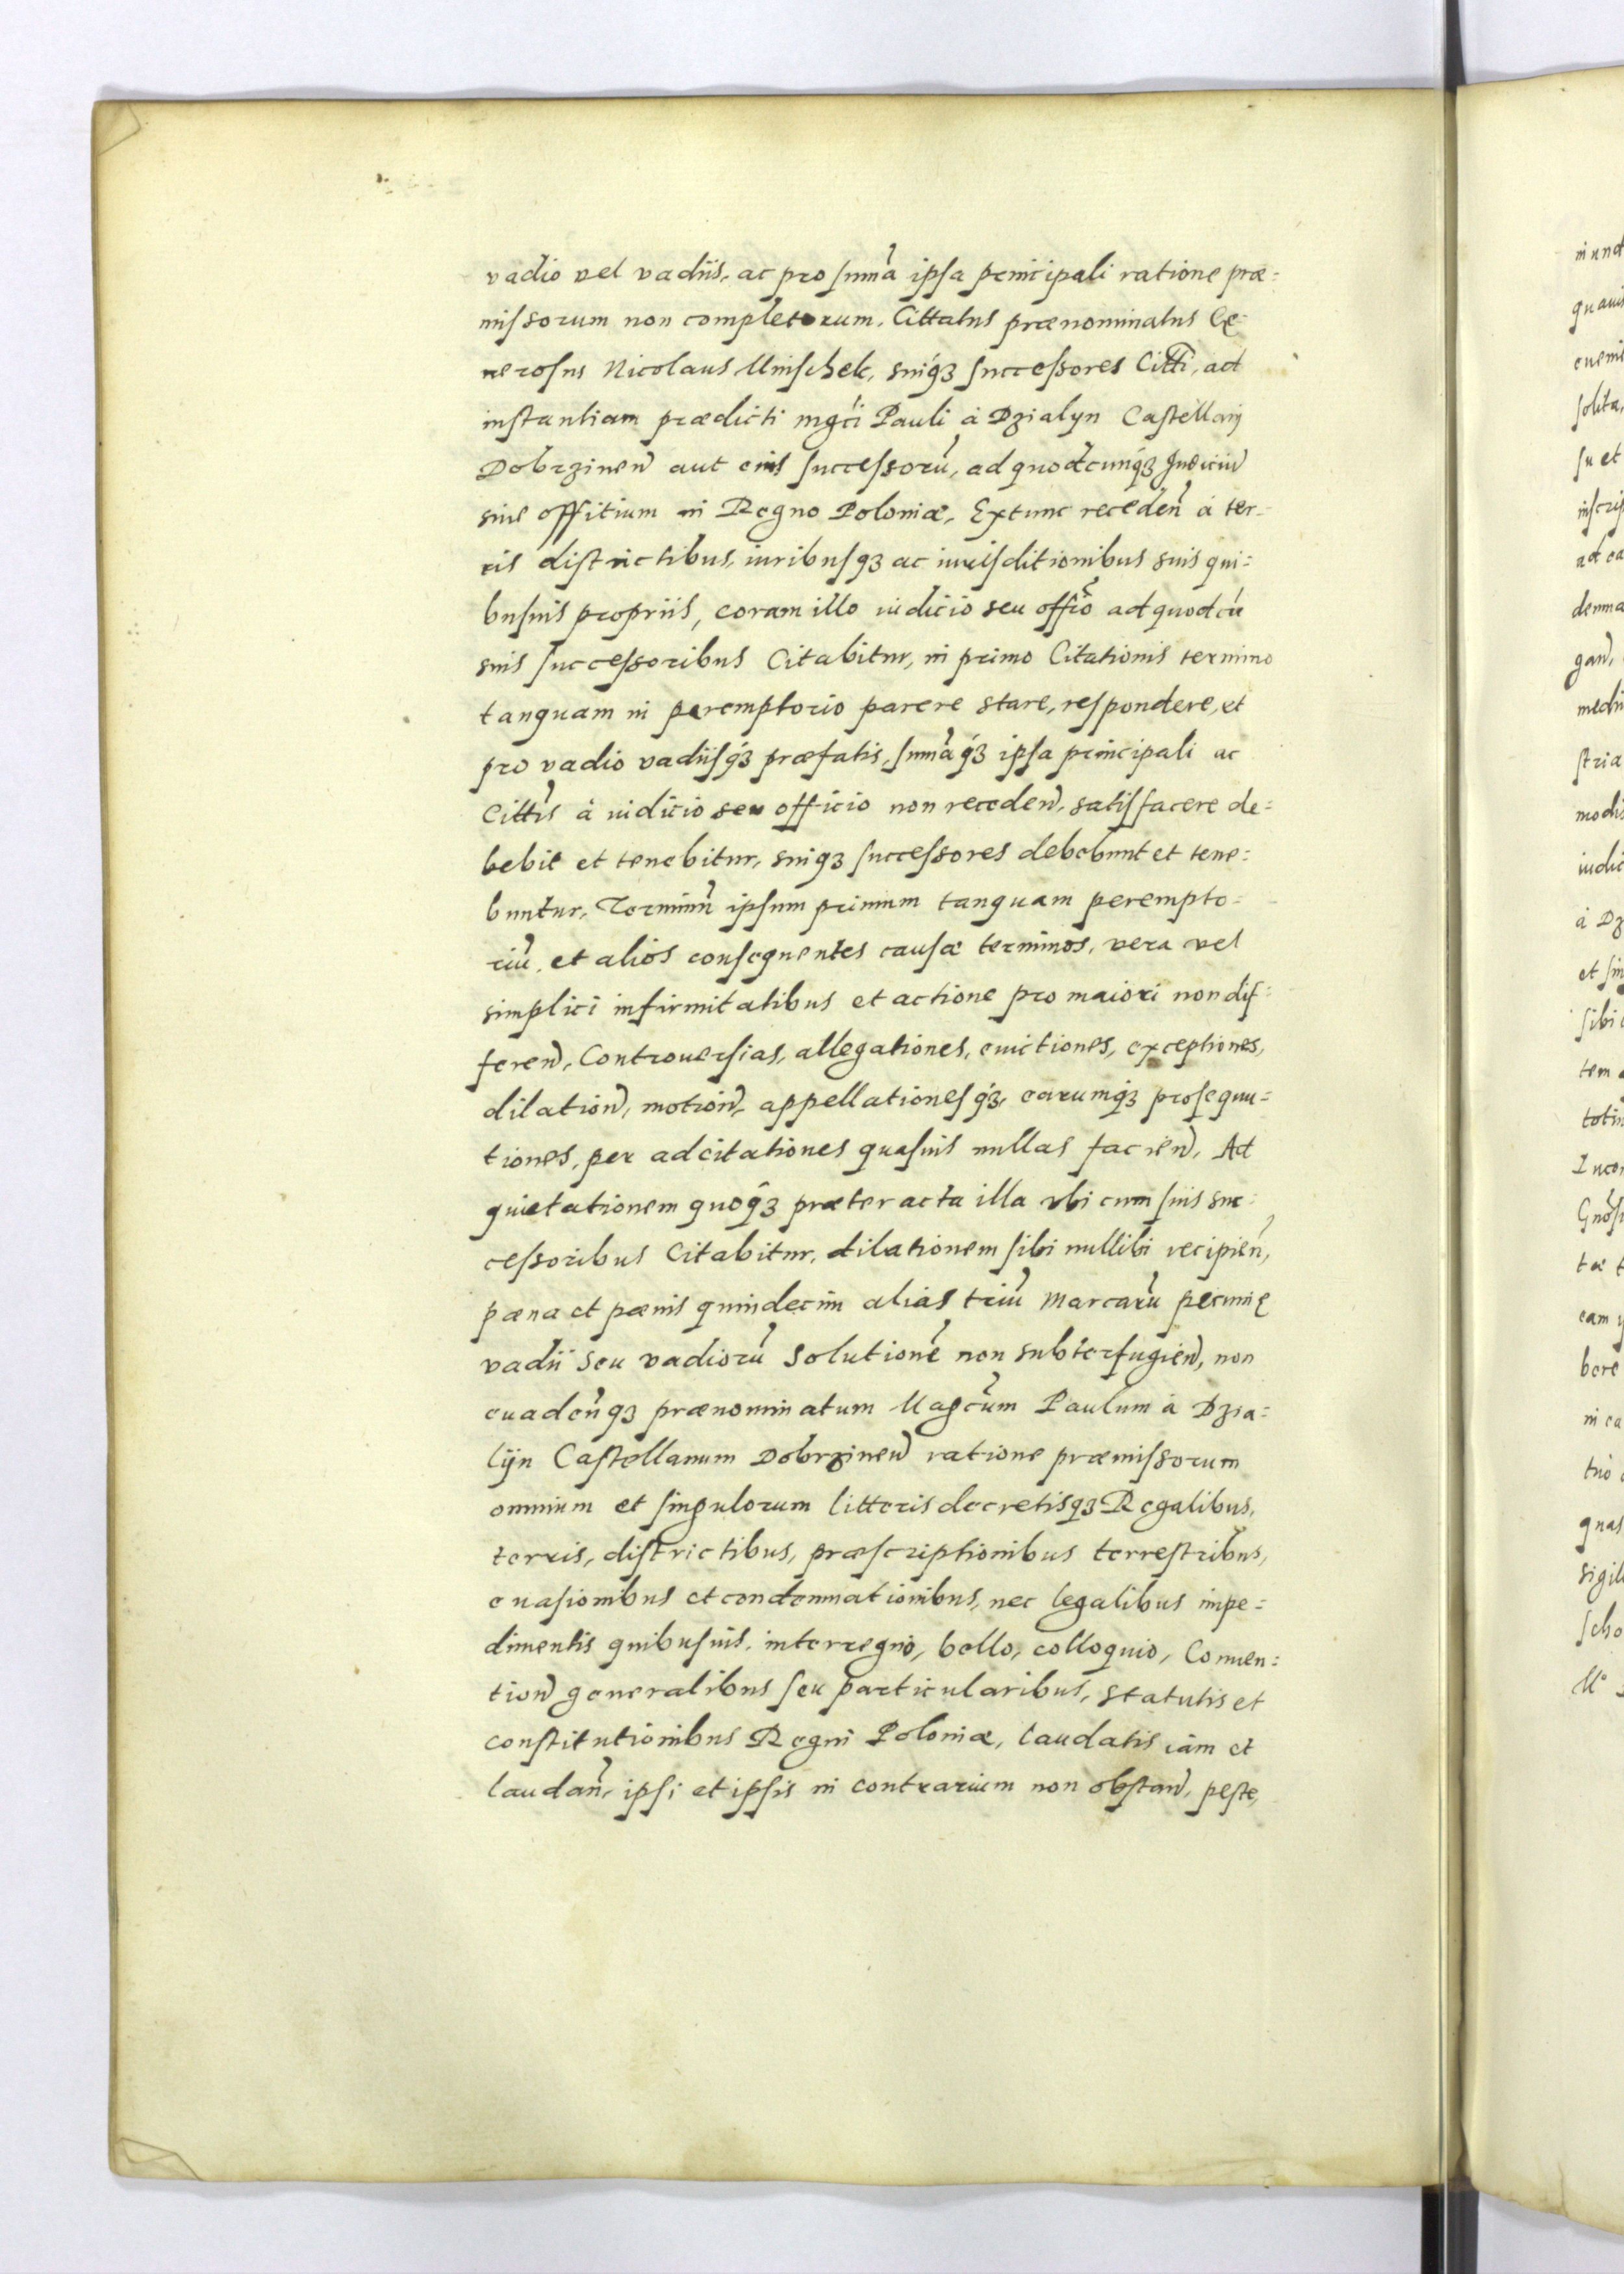 vadio vel vadiis, ac pro summa ipsa principali ratione præ=
missorum non completorum. Cittatus prænominatus Ge=
nerosus Nicolaus Mnischek, suiqꝫ successores Citti, ad
instantiam prædicti mgci Pauli à Dzialyn Castellanj
Dobrzinen aut eius successorũ, ad quodcunqꝫ Iudiciũ
siue offitium in Regno Poloniæ, Extunc receden̄ à ter=
ris districtibus, iuribusqꝫ ac iurisditionibus suis qui=
busuis propriis, coram illo iudicio seu offiõ ad quod cũ
suis successoribus Citabitur, in primo Citationis termino
tanquam in peremptorio parere stare, respondere, et
pro vadio vadiisqꝫ præfatis, summaqꝫ ipsa principali ac
Cittis à iudicio seu officio non receden̄, satisfacere de=
bebit et tenebitur, suiqꝫ successores debebunt et tene=
buntur, Terminũ ipsum primum tanquam perempto=
riũ, et alios consequentes causæ terminos, vera vel
simplici infirmitatibus et actione pro maiori non dif=
feren̄, Controuersias, allegationes, euictiones, exceptiones,
dilation̄, motion̄, appellationesqꝫ, earumqꝫ prosequu=
tiones, per adcitationes quasuis nullas facien̄, Ad
quietationem quoqꝫ præter acta illa vbi cum suis suc=
cessoribus Citabitur, dilationem sibi nullibi recipien̄,
pæna et pænis quindecim alias triũ Marcarũ pecunię
vadii seu vadiorũ solutionẽ non subterfugien̄, non
euaden̄qꝫ prænominatum Magcum Paulum à Dzia=
lijn Castellanum Dobrzinen̄ ratione præmissorum
omnium et singulorum litteris decretisqꝫ Regalibus,
terris, districtibus, præscriptionibus terrestribus,
euasionibus et condemnationibus, nec legalibus impe=
dimentis quibusuis, interregno, bello, colloquio, Conuen=
tion̄ generalibus seu particularibus, statutis et
constitutionibus Regni Poloniæ, laudatis iam et
laudan̄, ipsi et ipsis in contrarium non obstan̄, peste,